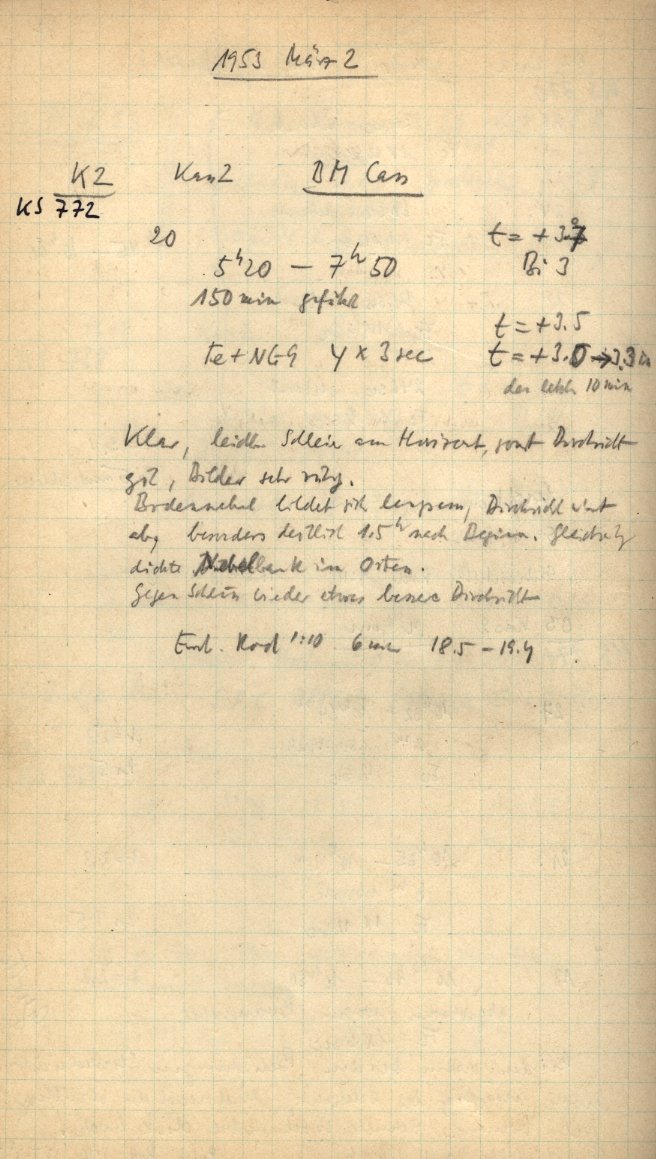 1953 März 2
K2 Kas2 BM Cass
KS 772
20 t = + 3.7
5ʰ20 — 7ʰ50 Bi 3
150 min geführt
t = +3.5
Te + NG9 4 × 3 sec t = +3.0 → 3.3 in
den letzten 10 min
Klar, leichter Schleier am Horizont, sonst Durchsicht
gut, Bilder sehr ruhig.
Bodennebel bildet sich langsam, Durchsicht nimmt
ab, besonders deutlich 1.5ʰ nach Beginn. Gleichzeitig
dichte Nebelbank im Osten.
Gegen Schluss wieder etwas bessere Durchsicht
Entl. Rod 1:10 6 min 18.5 – 19.4